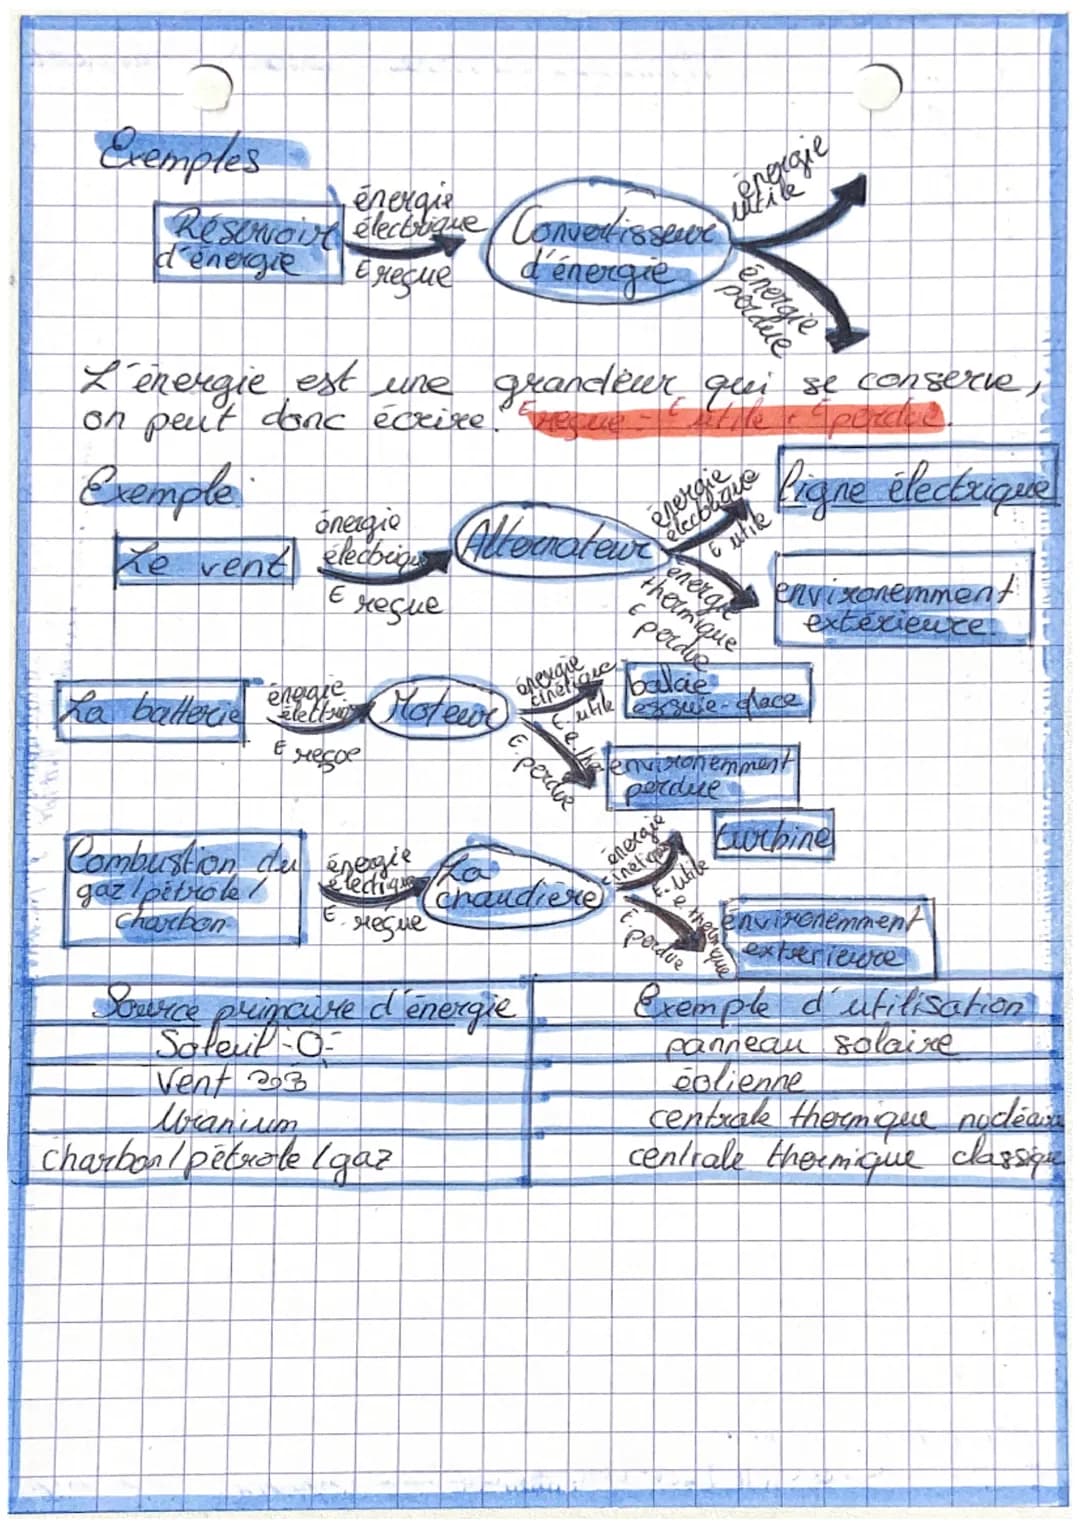 Exemples
Réservoir
d'énergie
énergie
électrique
E reçue
Convertisseur
d'énergie
énergie
utile
énergie
perdue
L'énergie est une grandeur qui se conserve,
on peut donc écrire: E reçue = E utile + E perdue.
Exemple:
Le vent
énergie
électrique
E reçue
Alternateur
énergie
électrique
E utile
énergie
thermique
E perdue
ligne électrique
environemment
extérieure.
La batterie
énergie
E reçoe
Moteur
énergie
cinétique
E. utile
E perdue
balaie
essuie-glace
environemment
perdue
Combustion du
gaz/pétrole/
charbon
énergie
électrique
E. reçue
La
chaudière
énergie
cinétique
E. utile
E. e thermique
E perdue
turbine
énvironemment
exterieure
Source primaire d'énergie
Exemple d'utilisation
Soleil
panneau solaire
Vent
éolienne
Uranium
centrale thermique nucléaire
charbon/pétrole/gaz
centrale thermique classique